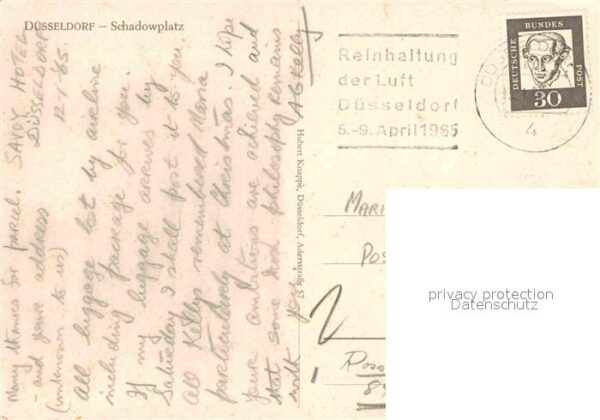 DÜSSELDORF — Schadowplatz
Many thanks for parcel.
- and your address
(unknown to us)
SAVOY HOTEL
DÜSSELDORF
12-1-65.
All luggage lost by airline
including package for you.
If my luggage arrives by
Saturday I shall post it to you.
All Kellys remembered Maria
particularly at Christmas. I hope
your ambitions are achieved and
that some Irish philosophy remains
with you.
A G Kelly
Hubert Knappe, Düsseldorf, Adersstraße 57
Reinhaltung
der Luft
Düsseldorf
5.-9. April 1965
DEUTSCHE
BUNDES
POST
30
4
MARI
POS
privacy protection
Datenschutz